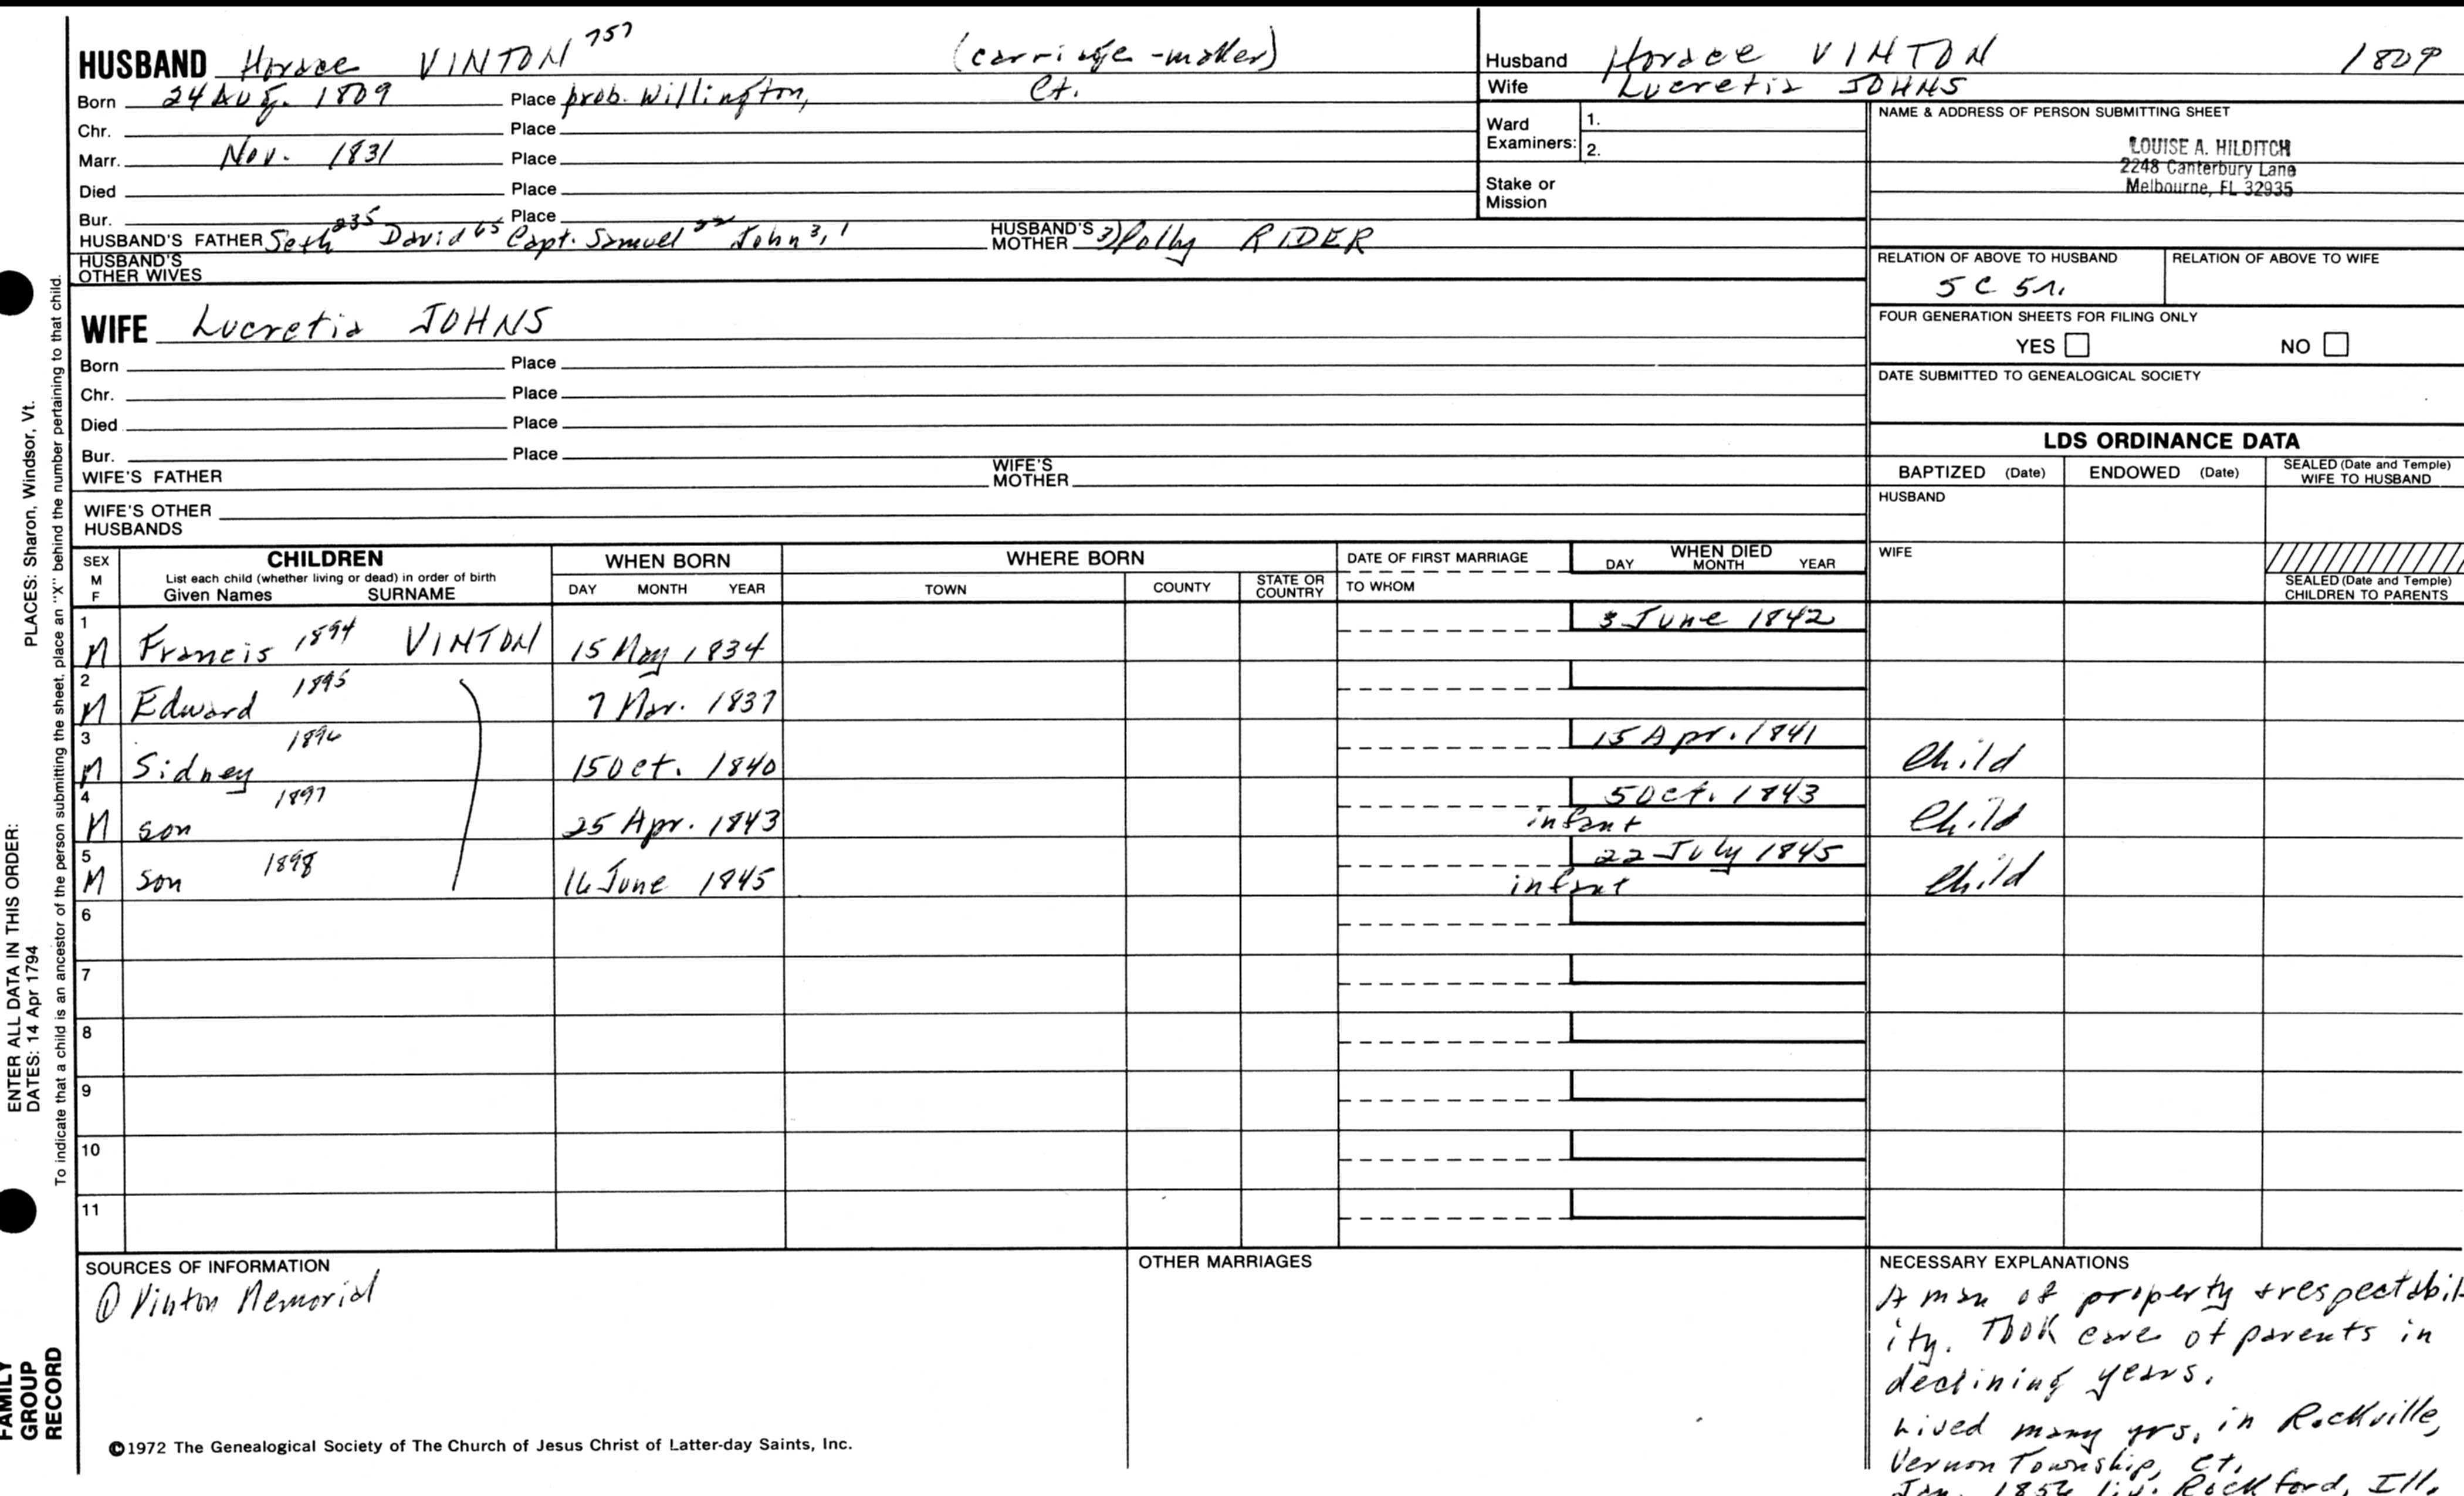 HUSBAND Horace VINTON 757 (carriage-maker)
Born 24 Aug. 1809 Place prob. Willington, Ct.
Chr. Place
Marr. Nov. 1831 Place
Died Place
Bur. Place
HUSBAND'S FATHER Seth 235 David 65 Capt. Samuel 22 John 3, 1 HUSBAND'S MOTHER 3) Polly RIDER
HUSBAND'S OTHER WIVES
WIFE Lucretia JOHNS
Born Place
Chr. Place
Died Place
Bur. Place
WIFE'S FATHER WIFE'S MOTHER
WIFE'S OTHER HUSBANDS
Husband Horace VINTON 1809
Wife Lucretia JOHNS
Ward Examiners: 1.
2.
Stake or Mission
NAME & ADDRESS OF PERSON SUBMITTING SHEET
LOUISE A. HILDITCH
2248 Canterbury Lane
Melbourne, FL 32935
RELATION OF ABOVE TO HUSBAND RELATION OF ABOVE TO WIFE
5 C 5r.
FOUR GENERATION SHEETS FOR FILING ONLY
YES NO
DATE SUBMITTED TO GENEALOGICAL SOCIETY
LDS ORDINANCE DATA
BAPTIZED (Date) ENDOWED (Date) SEALED (Date and Temple) WIFE TO HUSBAND
HUSBAND
WIFE
SEALED (Date and Temple) CHILDREN TO PARENTS
SEX M F CHILDREN WHEN BORN WHERE BORN DATE OF FIRST MARRIAGE WHEN DIED
List each child (whether living or dead) in order of birth
Given Names SURNAME DAY MONTH YEAR TOWN COUNTY STATE OR COUNTRY TO WHOM DAY MONTH YEAR
1 M Francis 1894 VINTON 15 May 1834 3 June 1842
2 M Edward 1895 7 Mar. 1837
3 M Sidney 1896 15 Oct. 1840 15 Apr. 1841 Child
4 M son 1897 25 Apr. 1843 infant 5 Oct. 1843 Child
5 M son 1898 16 June 1845 infant 22 July 1845 Child
6
7
8
9
10
11
SOURCES OF INFORMATION
① Vinton Memorial
OTHER MARRIAGES
NECESSARY EXPLANATIONS
A man of property + respectabil-
ity. Took care of parents in
declining years.
Lived many yrs, in Rockville,
Vernon Township, Ct.
Jan. 1856 liv. Rockford, Ill.
©1972 The Genealogical Society of The Church of Jesus Christ of Latter-day Saints, Inc.
To indicate that a child is an ancestor of the person submitting the sheet, place an "X" behind the number pertaining to that child.
ENTER ALL DATA IN THIS ORDER:
DATES: 14 Apr 1794 PLACES: Sharon, Windsor, Vt.
FAMILY
GROUP
RECORD